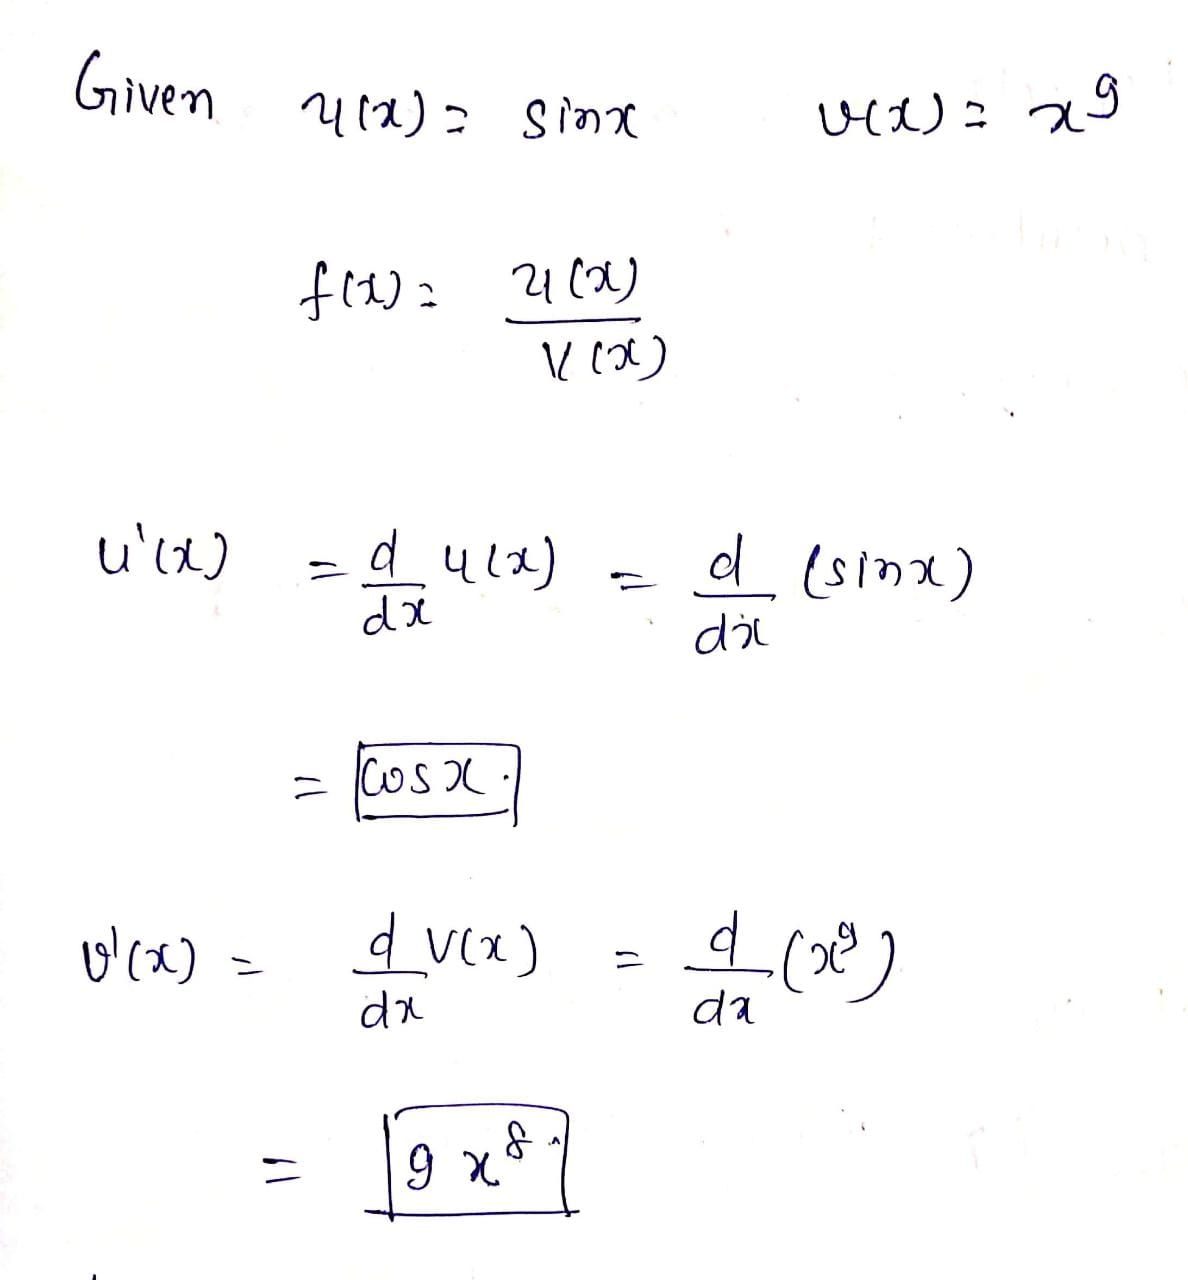 Given u(x) = sinx v(x) = x^9
f(x) = u(x) / v(x)
u'(x) = d/dx u(x) = d/dx (sinx)
= cosx.
v'(x) = d/dx v(x) = d/dx (x^9)
= 9x^8.